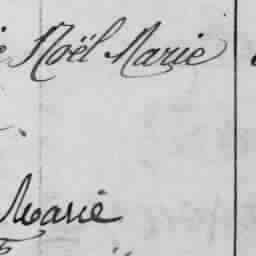 Noël Marie
Marie